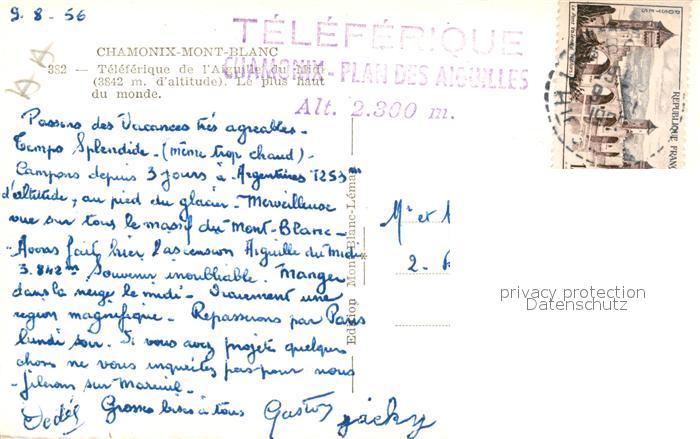 9.8.56
TÉLÉFÉRIQUE
CHAMONIX-MONT-BLANC
CHAMONIX - PLAN DES AIGUILLES
382 — Téléférique de l'Aiguille du Midi
(3842 m. d'altitude). Le plus haut
du monde.
Alt. 2.300 m.
POSTES
RÉPUBLIQUE FRANÇ
Passons des Vacances très agréables -
Temps Splendide - (même trop chaud) -
Campons depuis 3 jours à Argentières 1253m
d'altitude, au pied du glacier - Merveilleuse
vue sur tous le massif du Mont-Blanc -
- Avons fait hier l'ascension Aiguille du Midi
3.842m Souvenir inoubliable. Manger
dans la neige le midi - Vraiement une
région magnifique - Repasserons par Paris
lundi soir. Si vous avez projeté quelques
chose ne vous inquietés pas pour nous
- filerons sur Mareuil -
Grosses bises à tous
Dedée Gaston Jacky
Edition Mont-Blanc-Léman
Mr et
2 -
privacy protection
Datenschutz